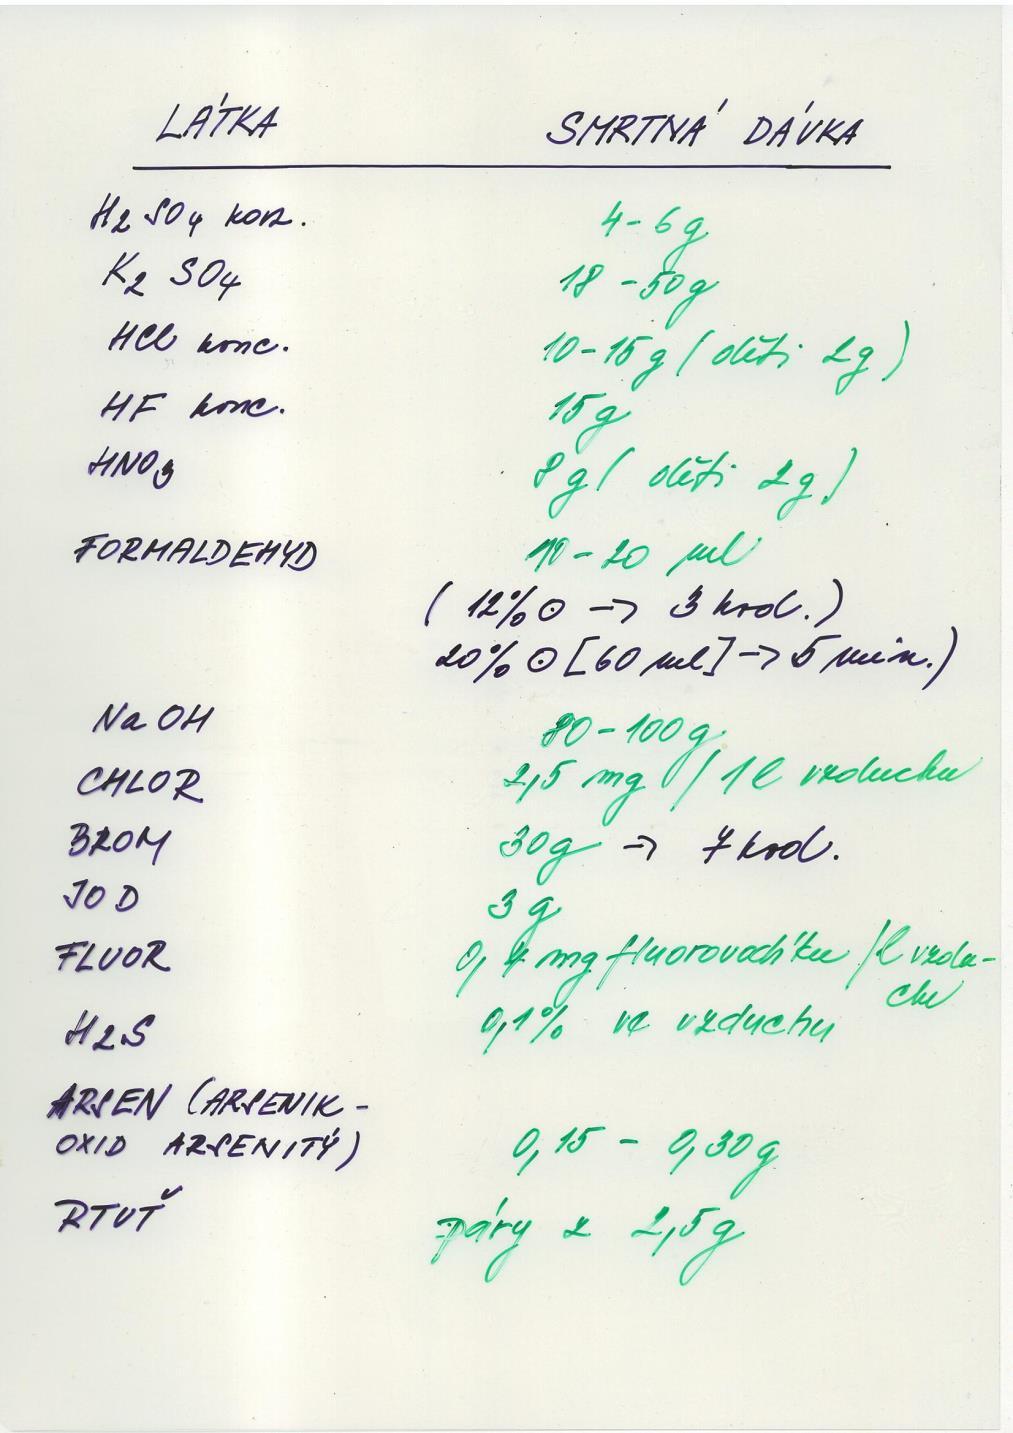 LÁTKA SMRTNÁ DÁVKA
H2SO4 konz. 4-6g
K2 SO4 18-50g
HCl konc. 10-15g (děti 2g)
HF konc. 15g
HNO3 8g (děti 2g)
FORMALDEHYD 10-20 ml
(12% ⊙ -> 3 hod.)
20% ⊙ [60 ml] -> 5 min.)
NaOH 80-100g
CHLOR 2,5 mg / 1 l vzduchu
BROM 30g -> 7 hod.
JOD 3g
FLUOR 0,4 mg fluorovodíku / l vzdu-
chu
H2S 0,1% ve vzduchu
ARSEN (ARSENIK -
OXID ARSENITÝ) 0,15 - 0,30g
RTUŤ páry z 2,5g